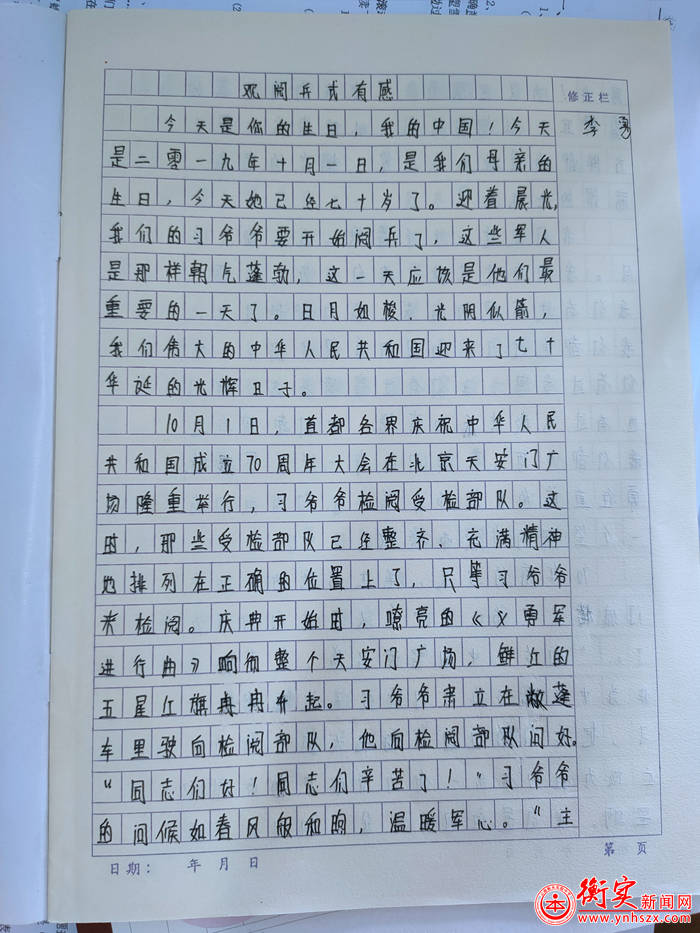 观阅兵式有感
修正栏
今天是你的生日，我的中国！今天
李勇
是二零一九年十月一日，是我们母亲的
生日，今天她已经七十岁了。迎着晨光，
我们的习爷爷要开始阅兵了，这些军人
是那样朝气蓬勃，这一天应该是他们最
重要的一天了。日月如梭，光阴似箭，
我们伟大的中华人民共和国迎来了七十
华诞的光辉日子。
10月1日，首都各界庆祝中华人民
共和国成立70周年大会在北京天安门广
场隆重举行，习爷爷检阅受检部队。这
时，那些受检部队已经整齐、充满精神
地排列在正确的位置上了，只等习爷爷
来检阅。庆典开始时，嘹亮的《义勇军
进行曲》响彻整个天安门广场，鲜红的
五星红旗冉冉升起。习爷爷肃立在敞蓬
车里驶向检阅部队，他向检阅部队问好。
“同志们好！同志们辛苦了！”习爷爷
的问候如春风般和煦，温暖军心。“主
日期： 年 月 日
第 页
衡实新闻网
www.ynhszx.com